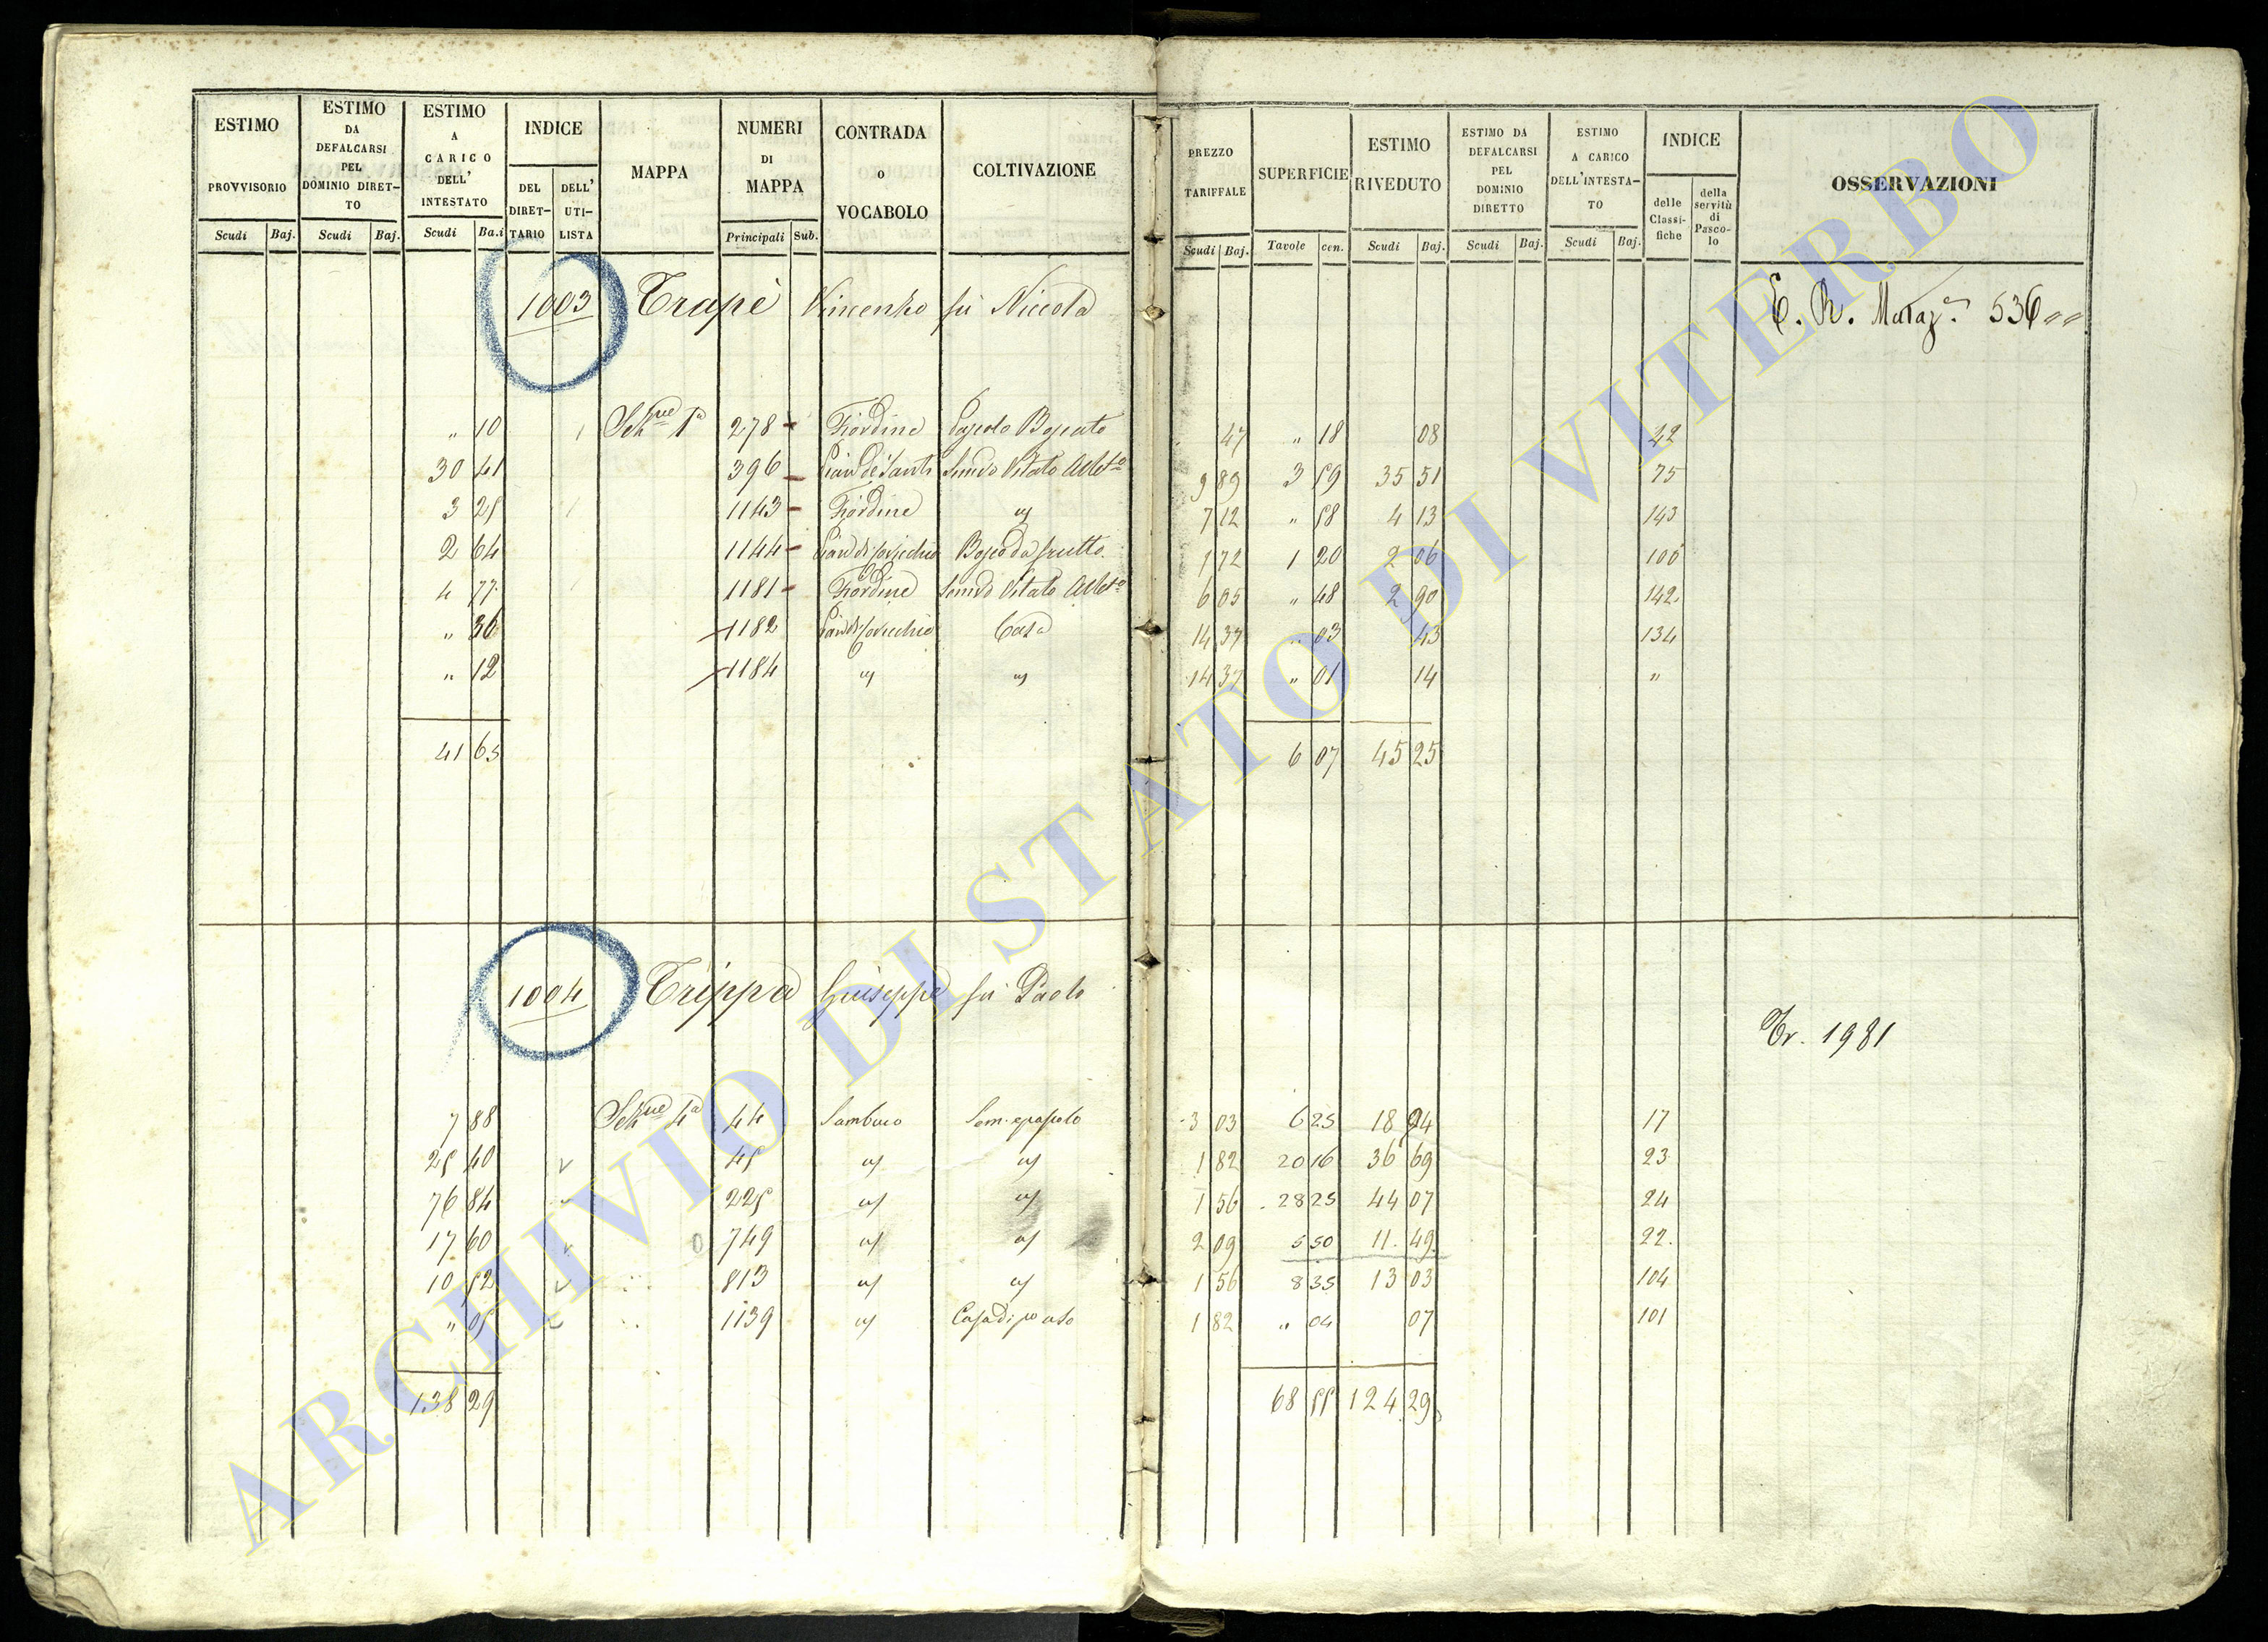 ESTIMO PROVVISORIO Scudi Baj.
ESTIMO DA DEFALCARSI PEL DOMINIO DIRET- TO Scudi Baj.
ESTIMO A CARICO DELL' INTESTATO Scudi Ba.i
INDICE DEL DIRET- TARIO DELL' UTI- LISTA
MAPPA
NUMERI DI MAPPA Principali Sub.
CONTRADA O VOCABOLO
COLTIVAZIONE
PREZZO TARIFFALE Scudi Baj.
SUPERFICIE Tavole cen.
ESTIMO RIVEDUTO Scudi Baj.
ESTIMO DA DEFALCARSI PEL DOMINIO DIRETTO Scudi Baj.
ESTIMO A CARICO DELL'INTESTA- TO Scudi Baj.
INDICE delle Classi- fiche della servitù di Pasco- lo
OSSERVAZIONI
1003 Trapè Vincenzo fu Niccola E. R. 536 " "
" 10 Sezne 1a 278 Fiordine Pascolo Boscato 47 " 18 08 42
30 41 396 Pian de Santi Semivo Vitato Albto 9 89 3 59 35 51 75
3 25 1143 Fiordine 7 12 " 58 4 13 143
2 64 1144 Bosco da frutto 1 72 1 20 2 06 100
4 77 1181 Fiordine Semivo Vitato Albto 6 05 " 48 2 90 142
" 36 1182 Casa 14 37 " 03 43 134
" 12 1184 14 37 " 01 14 "
41 65 6 07 45 25
1004 Trippa Giuseppe fu Paolo Tr. 1981
7 88 Sezne 4a 44 Sambuco Sem. e pascolo 3 03 6 25 18 94 17
25 40 45 1 82 20 16 36 69 23
76 84 225 1 56 28 25 44 07 24
17 60 749 2 09 5 50 11 49 22
10 52 813 1 56 8 35 13 03 104
" 05 1139 Casa di 1 82 " 04 07 101
138 29 68 55 124 29
ARCHIVIO DI STATO DI VITERBO